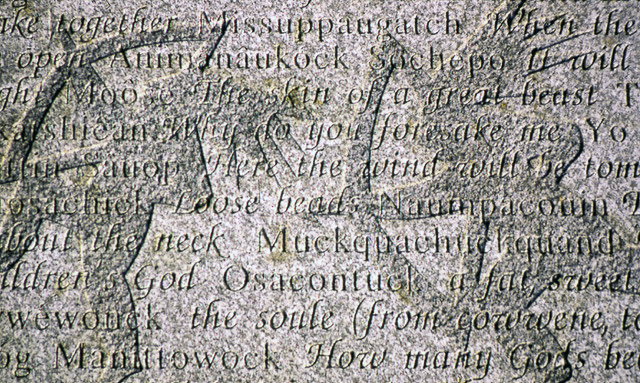 ke together Missuppaugatch When the
open Aumanaukock Sochepo It will
ght Moôse The skin of a great beast T
Why do you foresake me Yo
Sauop Here the wind will be tom
Loose beads Naumpacoun
bout the neck Muckquachuckquand
ildren's God Osacontuck a fat sweet
wewonck the soule (from cowwene, t
og Manittowock How many Gods be